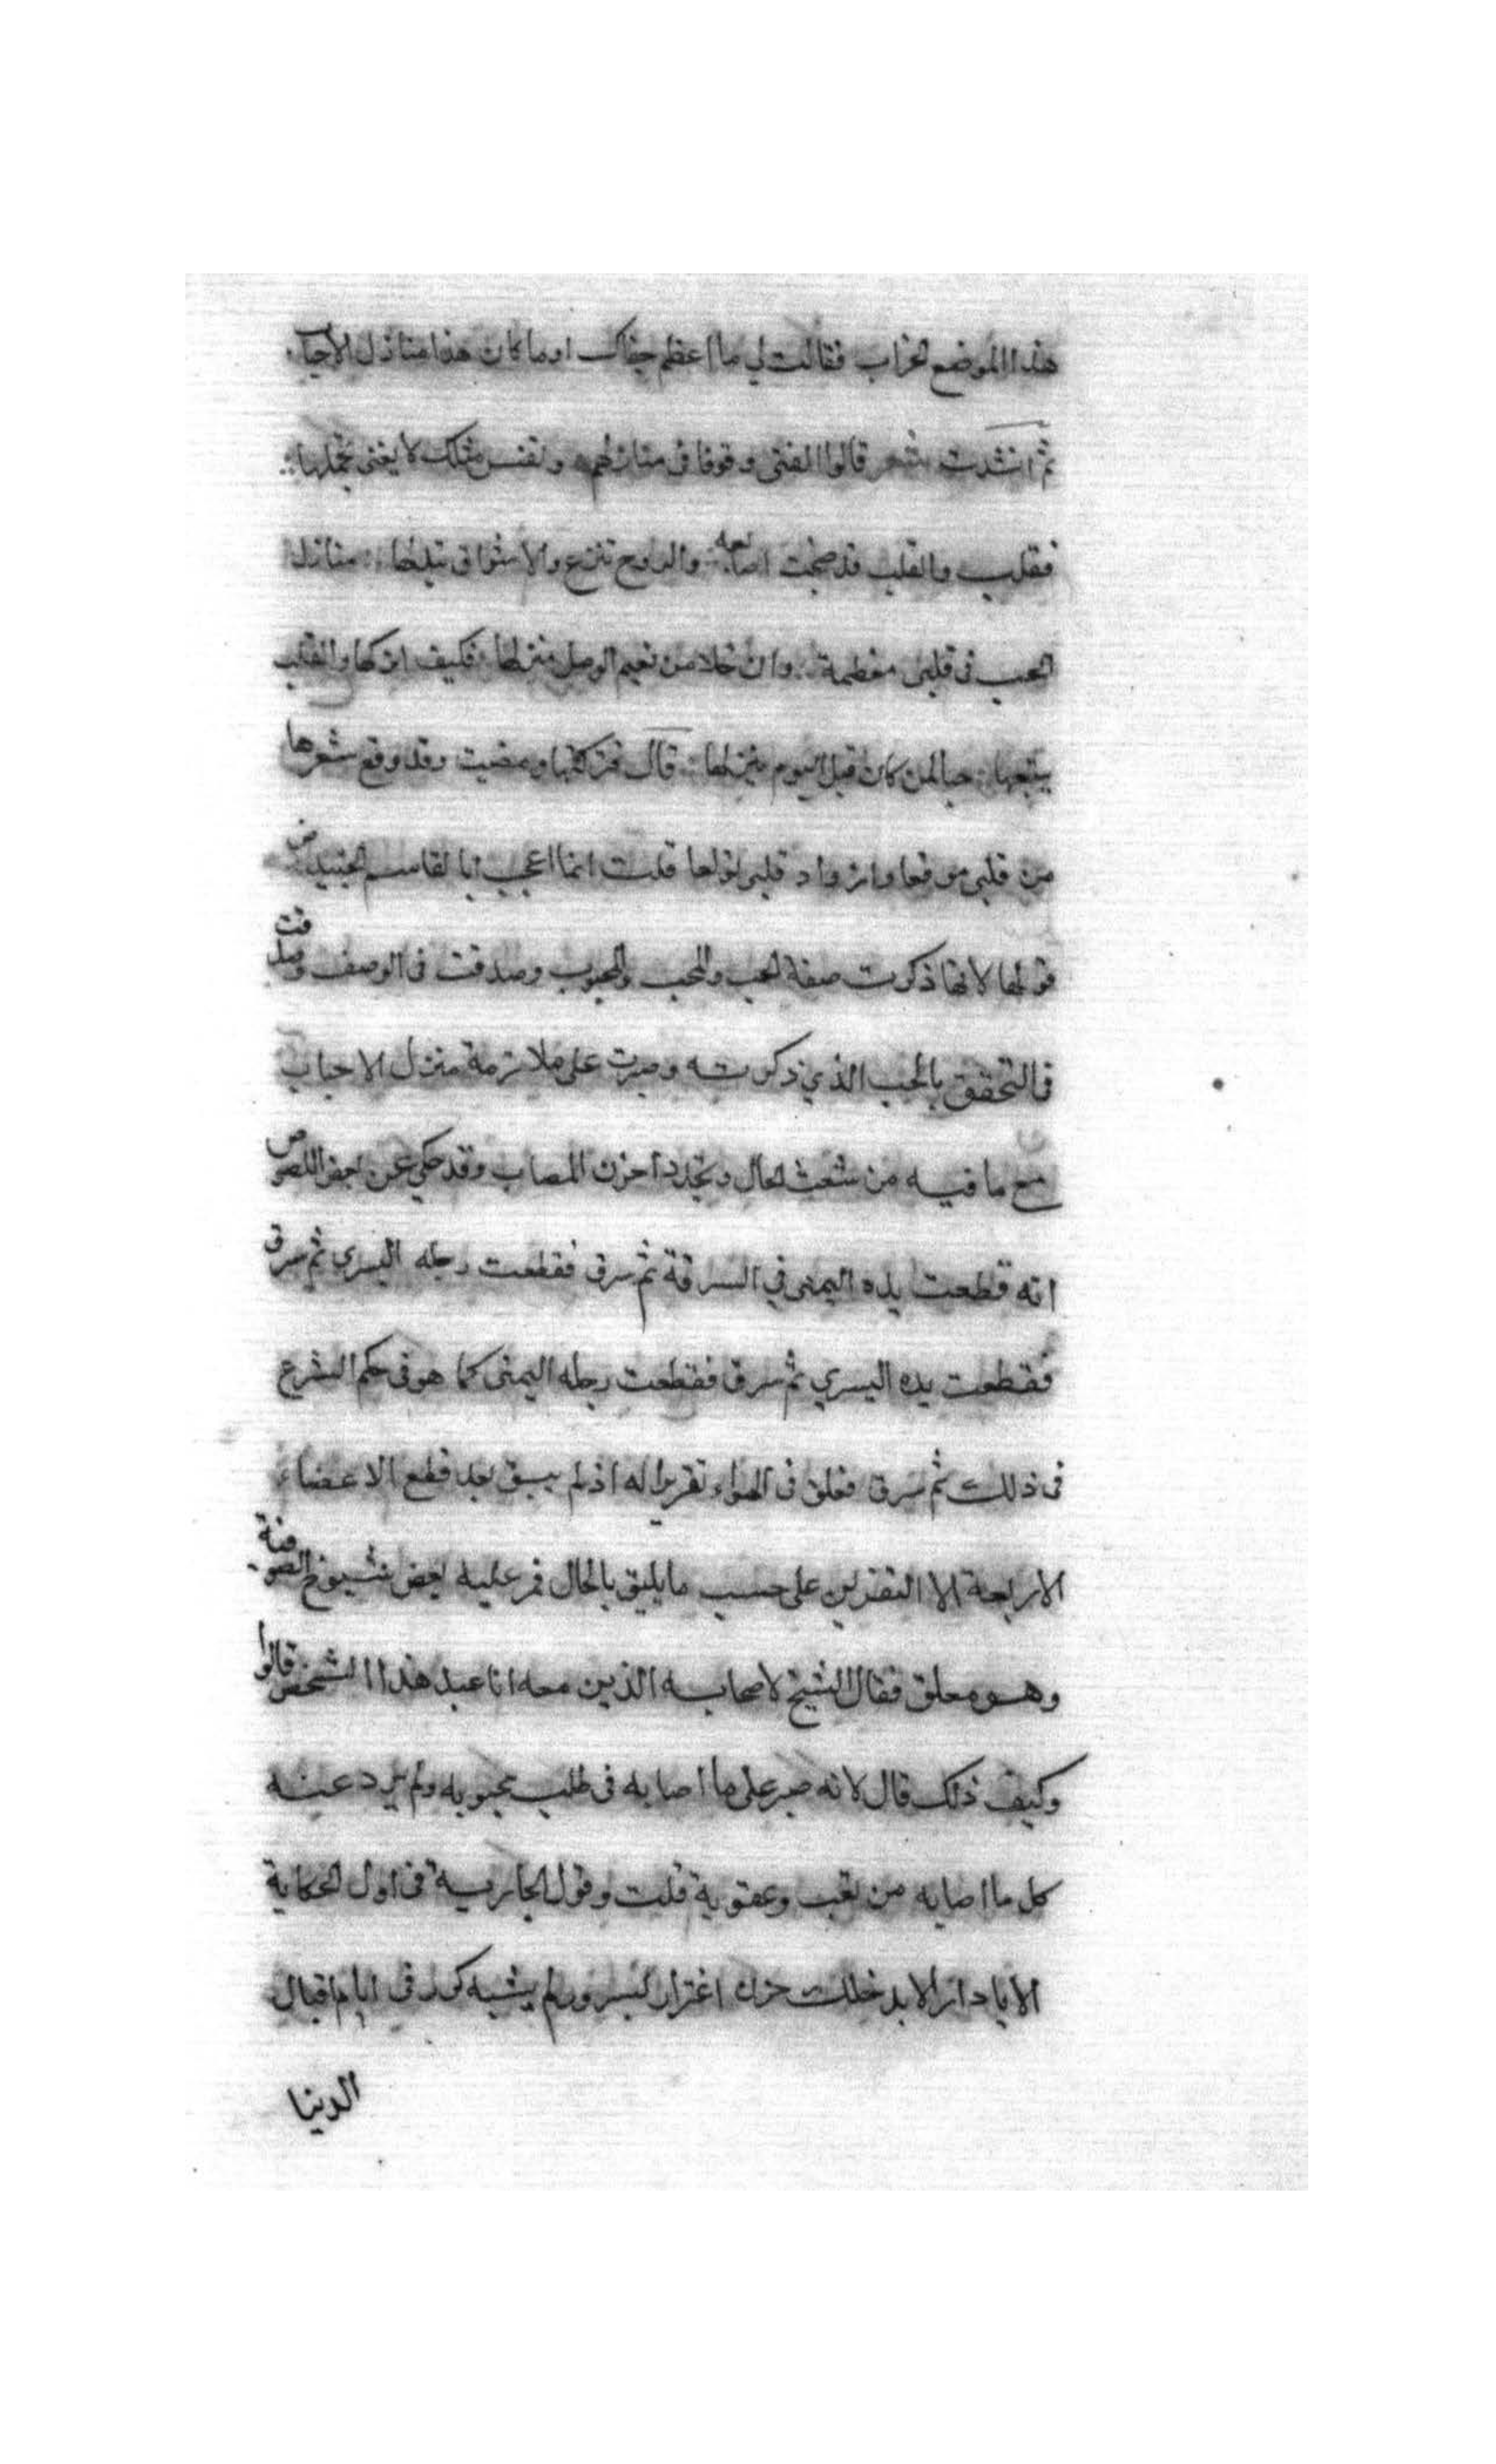 هذا الموضع الخراب فقالت لي ما اعظم جفاك او ما كان هذا منازل الاحباب
ثم انشدت شعر قالوا الفتى وقوفا في منازلهم ونفس مثلك لا يغنى تجملها
فقلت والقلب قد ضجت اضالعه والروح تنزع والاشواق تبدلها منازل
الحب في قلبي معظمة وان خلا من نعيم الوصل منزلها فكيف اتركها والقلب
يتبعها حبا لمن كان قبل اليوم ينزلها قال فتركتها ومضيت وقد وقع شعرها
من قلبي موقعا وازداد قلبي تولها قلت انما اعجب ابا القاسم الجنيد رض
قولها لانها ذكرت صفة الحب والمحب والمحبوب وصدقت في الوصف وصدقت
في التحقق بالحب الذي ذكرته وصبرت على ملازمة منزل الاحباب
مع ما فيه من شعث الحال وتجدد احزن المصاب وقد حكي عن بعض اللصوص
انه قطعت يده اليمنى في السرقة ثم سرق فقطعت رجله اليسري ثم سرق
فقطعت يده اليسري ثم سرق فقطعت رجله اليمنى كما هو في حكم الشرع
في ذلك ثم سرق فعلق في الهواء تعزيرا له اذ لم يبق بعد قطع الاعضاء
الاربعة الا التعزير على حسب ما يليق بالحال فمر عليه بعض شيوخ الصوفية
وهو معلق فقال الشيخ لاصحابه الذين معه انا عبد هذا الشخص قالوا
وكيف ذلك قال لانه صبر على ما اصابه في طلب محبوبه ولم يرد عينه
كل ما اصابه من تعب وعقوبة قلت وقول الجارية في اول الحكاية
الا يا دار لا يدخلك حزن اغترار بسرور لم يشبه كدر في ايام اقبال
الدنيا